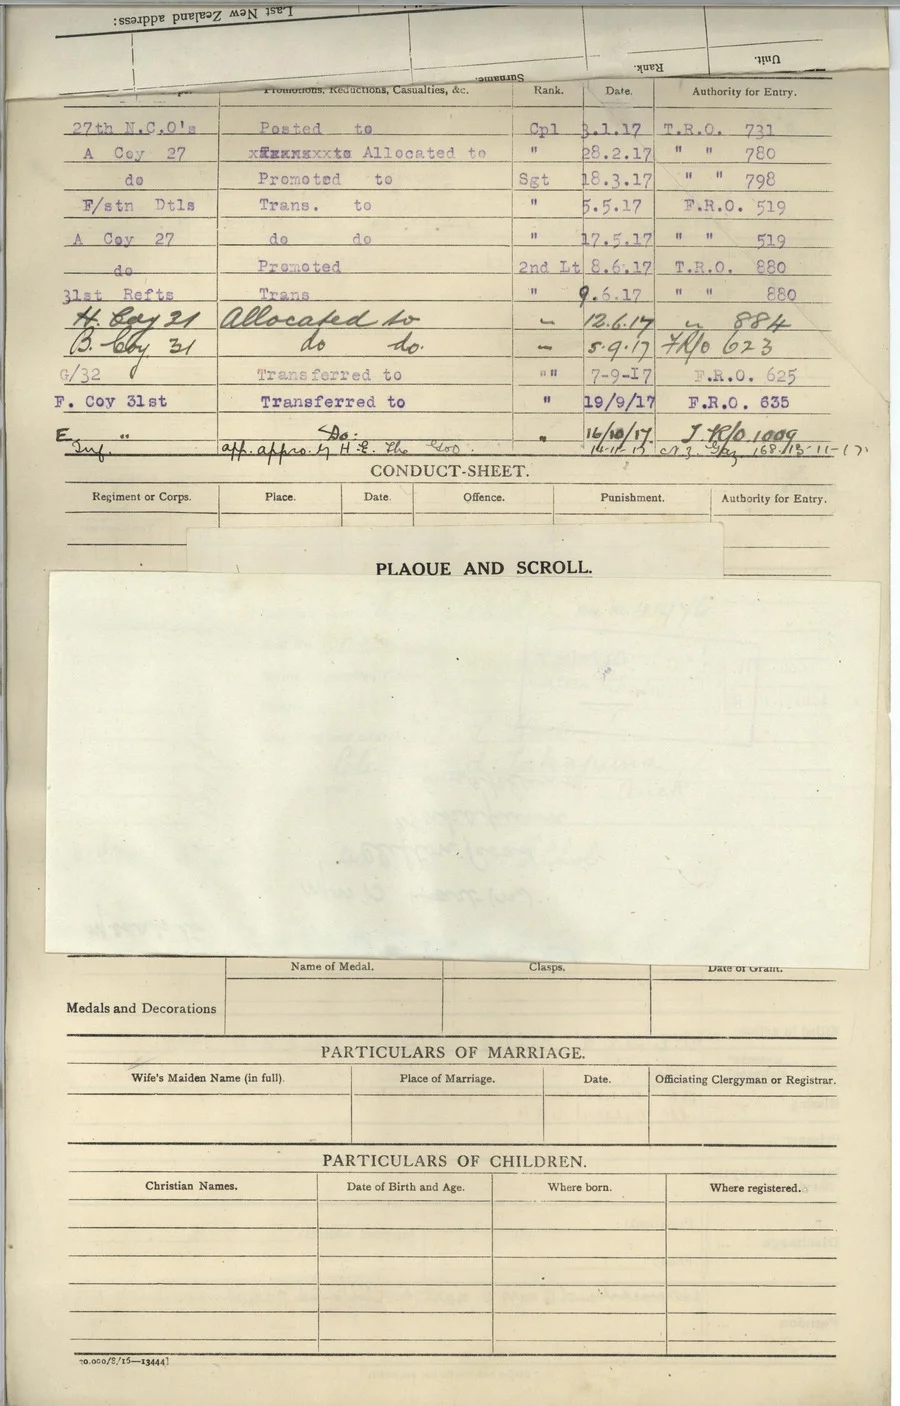 Last New Zealand address:
Surname.
Rank.
Unit.
Promotions, Reductions, Casualties, &c. Rank. Date. Authority for Entry.
27th N.C.O's Posted to Cpl 3.1.17 T.R.O. 731
A Coy 27 Allocated to " 28.2.17 " " 780
do Promoted to Sgt 18.3.17 " " 798
F/stn Dtls Trans. to " 5.5.17 F.R.O. 519
A Coy 27 do do " 17.5.17 " " 519
do Promoted 2nd Lt 8.6.17 T.R.O. 880
31st Refts Trans " 9.6.17 " " 880
H. Coy 31 Allocated to " 12.6.17 " 884
B. Coy 31 do do. " 5.9.17 FR/o 623
G/32 Transferred to "" 7-9-17 F.R.O. 625
F. Coy 31st Transferred to " 19/9/17 F.R.O. 635
E. " Do: " 16/10/17. T R/O 1009
Inf. app. appro. by H.E. The Gov. N.Z. Gaz. 168. 13-11-17.
CONDUCT-SHEET.
Regiment or Corps. Place. Date. Offence. Punishment. Authority for Entry.
PLAQUE AND SCROLL.
Name of Medal. Clasps. Date of Grant.
Medals and Decorations
PARTICULARS OF MARRIAGE.
Wife's Maiden Name (in full). Place of Marriage. Date. Officiating Clergyman or Registrar.
PARTICULARS OF CHILDREN.
Christian Names. Date of Birth and Age. Where born. Where registered.
70,000/8/16—13444]